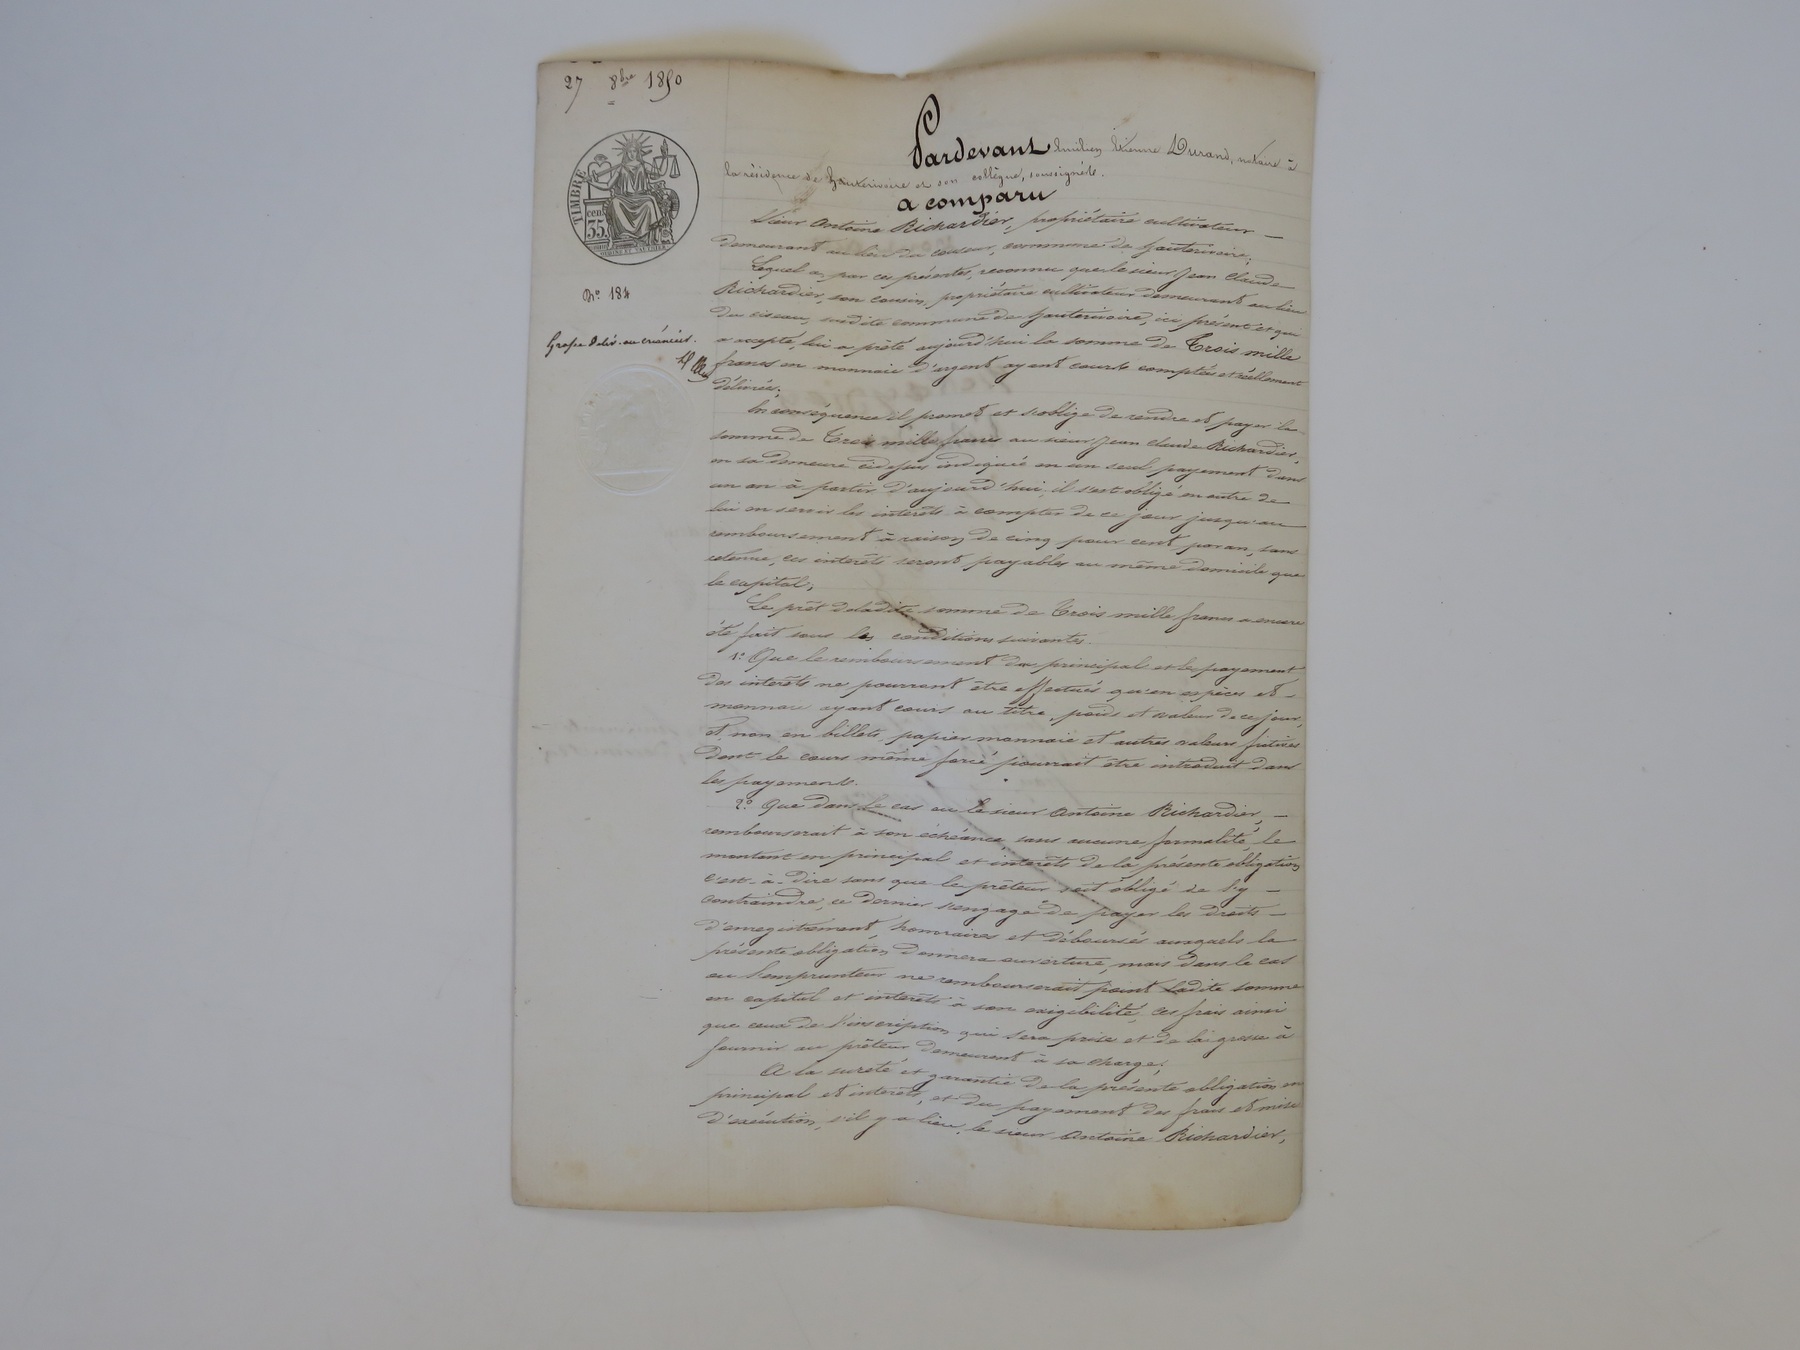 27 8bre 1850
TIMBRE
cen.
35
Nº 184
Grosse déliv. au créancier.
Pardevant Emilien Etienne Durand, notaire à
la résidence de Hauterivoire et son collègue, soussignés.
a comparu
Sieur Antoine Richardier, propriétaire cultivateur —
demeurant au lieu du ciseau, commune de hauterivoire;
Lequel a, par ces présentes, reconnu que le sieur Jean Claude
Richardier, son cousin, propriétaire cultivateur demeurant au lieu
du ciseau, susdite commune de hauterivoire, ici présent et qui
a accepté, lui a prêté aujourd'hui la somme de Trois mille
francs en monnaie d'argent ayant cours comptés et réellement
délivrés;
En conséquence il promet et s'oblige de rendre et payer la
somme de Trois mille francs au sieur Jean Claude Richardier,
en sa demeure ci-dessus indiquée en un seul payement dans
un an à partir d'aujourd'hui, il s'est obligé en outre de
lui en servir les intérêts à compter de ce jour jusqu'au
remboursement à raison de cinq pour cent par an, sans
retenue, ces intérêts seront payables au même domicile que
le capital;
Le prêt deladite somme de Trois mille francs a encore
été fait sous les conditions suivantes.
1º Que le remboursement du principal et le payement
des intérêts ne pourront être effectués qu'en espèces et —
monnaie ayant cours au titre, poids et valeur de ce jour,
et non en billets, papier monnaie et autres valeurs fictives
dont le cours même forcé pourrait être introduit dans
les payements.
2º Que dans le cas ou le sieur Antoine Richardier, —
rembourserait à son échéance, sans aucune formalité, le
montant en principal et intérêts de la présente obligation
c'est-à-dire sans que le prêteur soit obligé de l'y —
contraindre, ce dernier s'engage de payer les droits —
d'enregistrement, honoraires et déboursés auxquels la
présente obligation donnera ouverture, mais dans le cas
ou l'emprunteur ne rembourserait point ladite somme
en capital et intérêts à son exigibilité, ces frais ainsi
que ceux de l'inscription qui sera prise et de la grosse à
fournir au prêteur demeurent à sa charge;
A la sureté et garantie de la présente obligation en
principal et intérêts, et du payement des frais et mise
d'exécution, s'il y a lieu, le sieur Antoine Richardier,